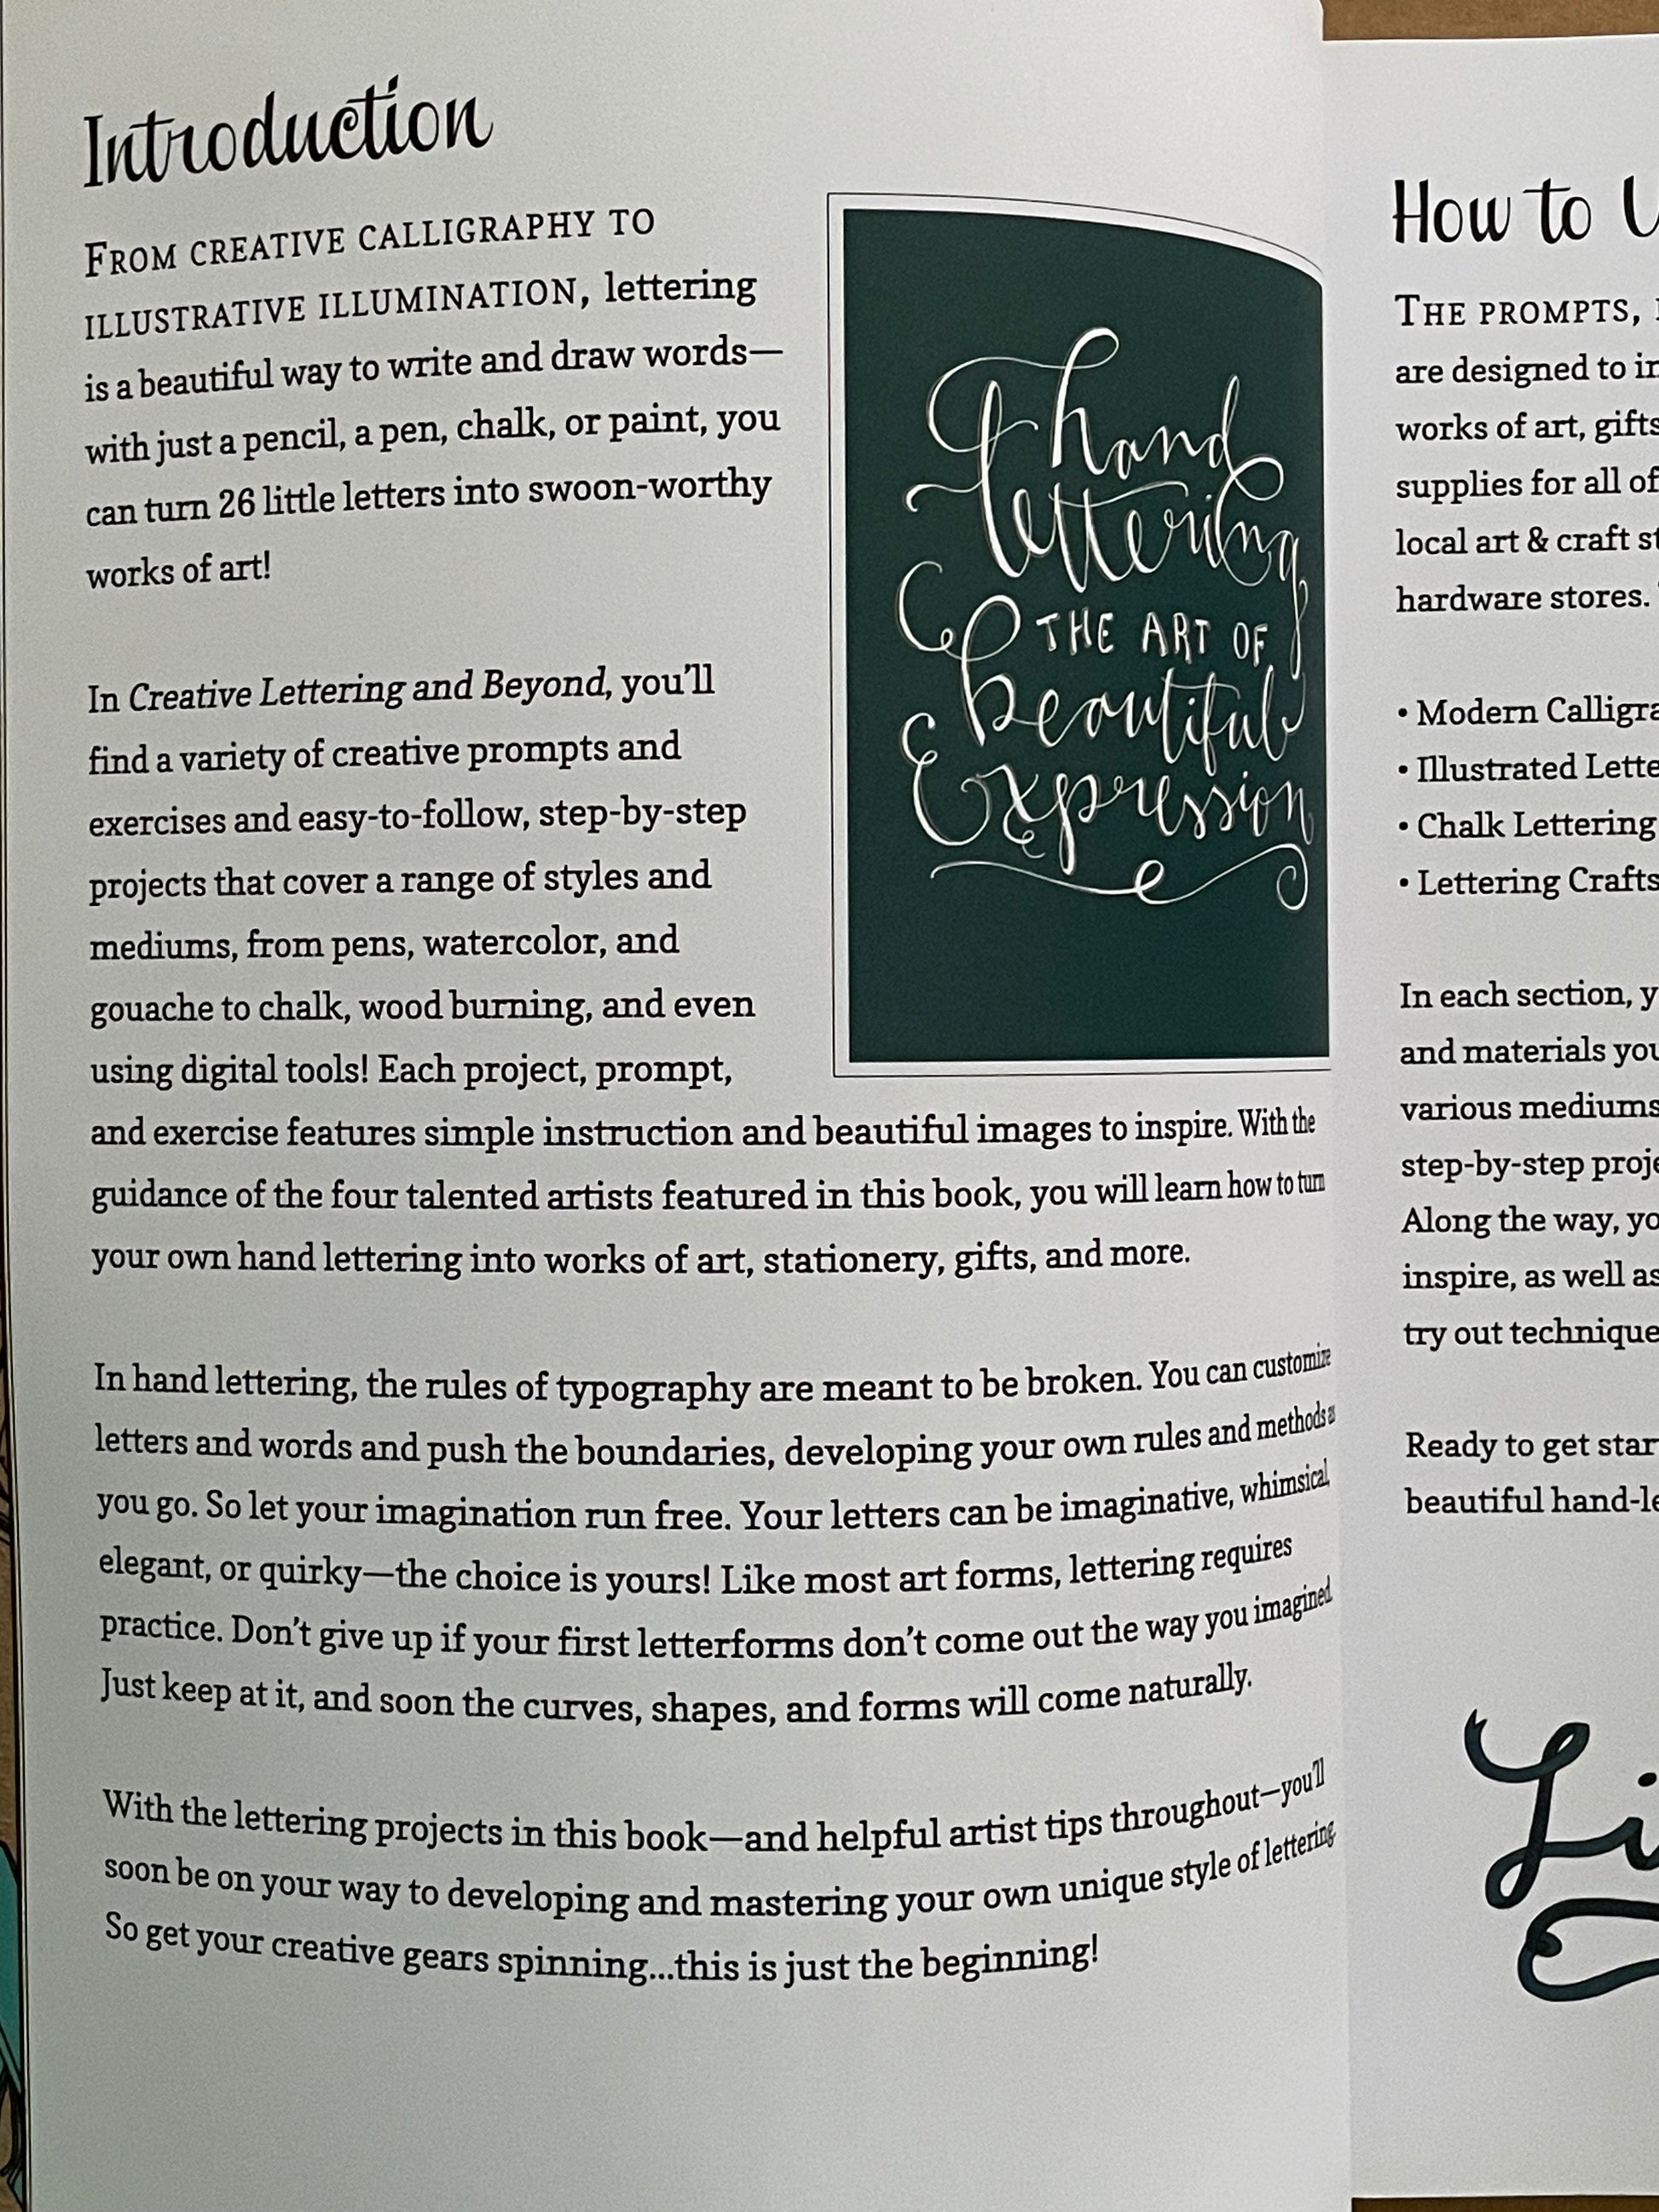 Introduction
FROM CREATIVE CALLIGRAPHY TO
ILLUSTRATIVE ILLUMINATION, lettering
is a beautiful way to write and draw words—
with just a pencil, a pen, chalk, or paint, you
can turn 26 little letters into swoon-worthy
works of art!
In Creative Lettering and Beyond, you'll
find a variety of creative prompts and
exercises and easy-to-follow, step-by-step
projects that cover a range of styles and
mediums, from pens, watercolor, and
gouache to chalk, wood burning, and even
using digital tools! Each project, prompt,
and exercise features simple instruction and beautiful images to inspire. With the
guidance of the four talented artists featured in this book, you will learn how to turn
your own hand lettering into works of art, stationery, gifts, and more.
In hand lettering, the rules of typography are meant to be broken. You can customize
letters and words and push the boundaries, developing your own rules and methods as
you go. So let your imagination run free. Your letters can be imaginative, whimsical,
elegant, or quirky—the choice is yours! Like most art forms, lettering requires
practice. Don't give up if your first letterforms don't come out the way you imagined.
Just keep at it, and soon the curves, shapes, and forms will come naturally.
With the lettering projects in this book—and helpful artist tips throughout—you'll
soon be on your way to developing and mastering your own unique style of lettering.
So get your creative gears spinning...this is just the beginning!
hand
lettering
THE ART OF
beautiful
Expression
How to
THE PROMPTS,
are designed to
works of art, gifts
supplies for all of
local art & craft
hardware stores.
• Modern
• Illustrated
• Chalk Lettering
• Lettering Crafts
In each section,
and materials
various mediums
step-by-step
Along the way,
inspire, as well as
try out technique
Ready to get
beautiful
Li